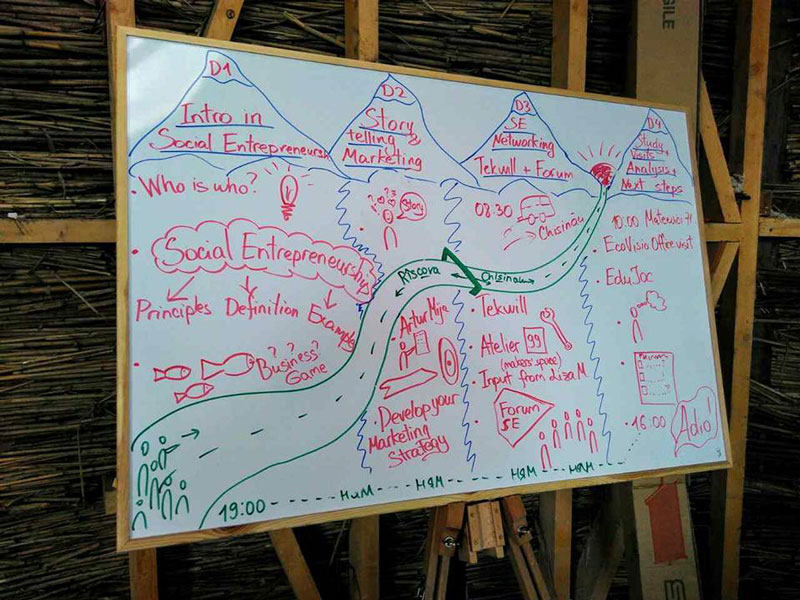 D1
Intro in
Social Entrepreneursh
D2
Story
telling &
Marketing
D3
SE
Networking
Tekwill + Forum
D4
Study
visits
Analysis +
Next steps
• Who is who?
• Social Entrepreneurship
Principles Definition Example
• ? ? ?
Business
Game
? ? ?
Story
Rîscova
Chisinau
Artur Mija
• Develop your
Marketing
Strategy
08:30
Chisinău
• Tekwill
• Atelier 99
(makers' space)
• Input from Liza M
• Forum
SE
• 10:00
• EcoVisio Office visit
• EduJoc
• 16:00
Adio!
19:00